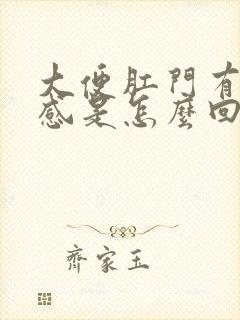 大便肛門有
感是怎麼回
齊家玉